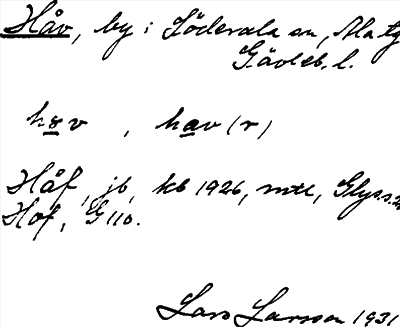 Håv, by i Söderala sn, Ala tg
Gävleb. l.
hav, hav (r)
Håf, jb, kb 1926, mtl, Glysis.
Hof, G 110.
Lars Larsson 1931